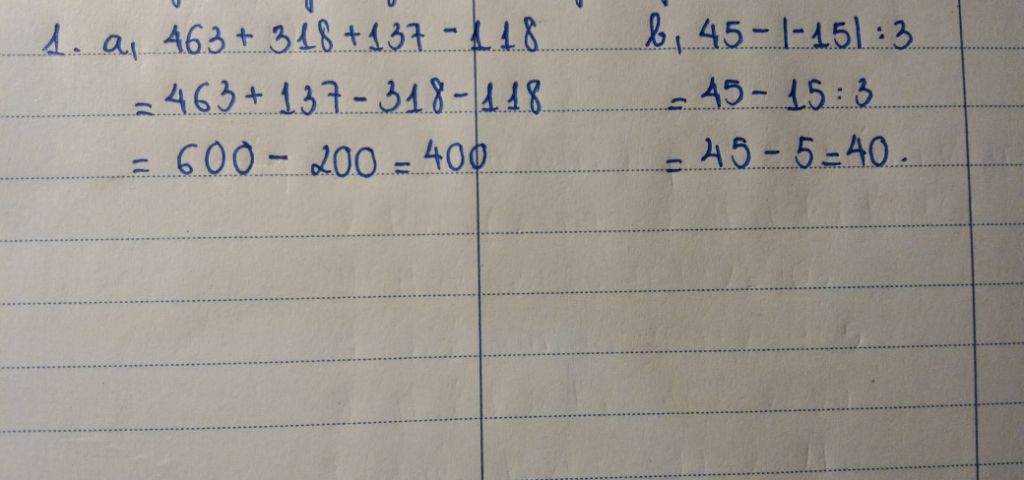 1. a, 463 + 318 + 137 - 118
= 463 + 137 - 318 - 118
= 600 - 200 = 400
b, 45 - |-15| : 3
= 45 - 15 : 3
= 45 - 5 = 40.